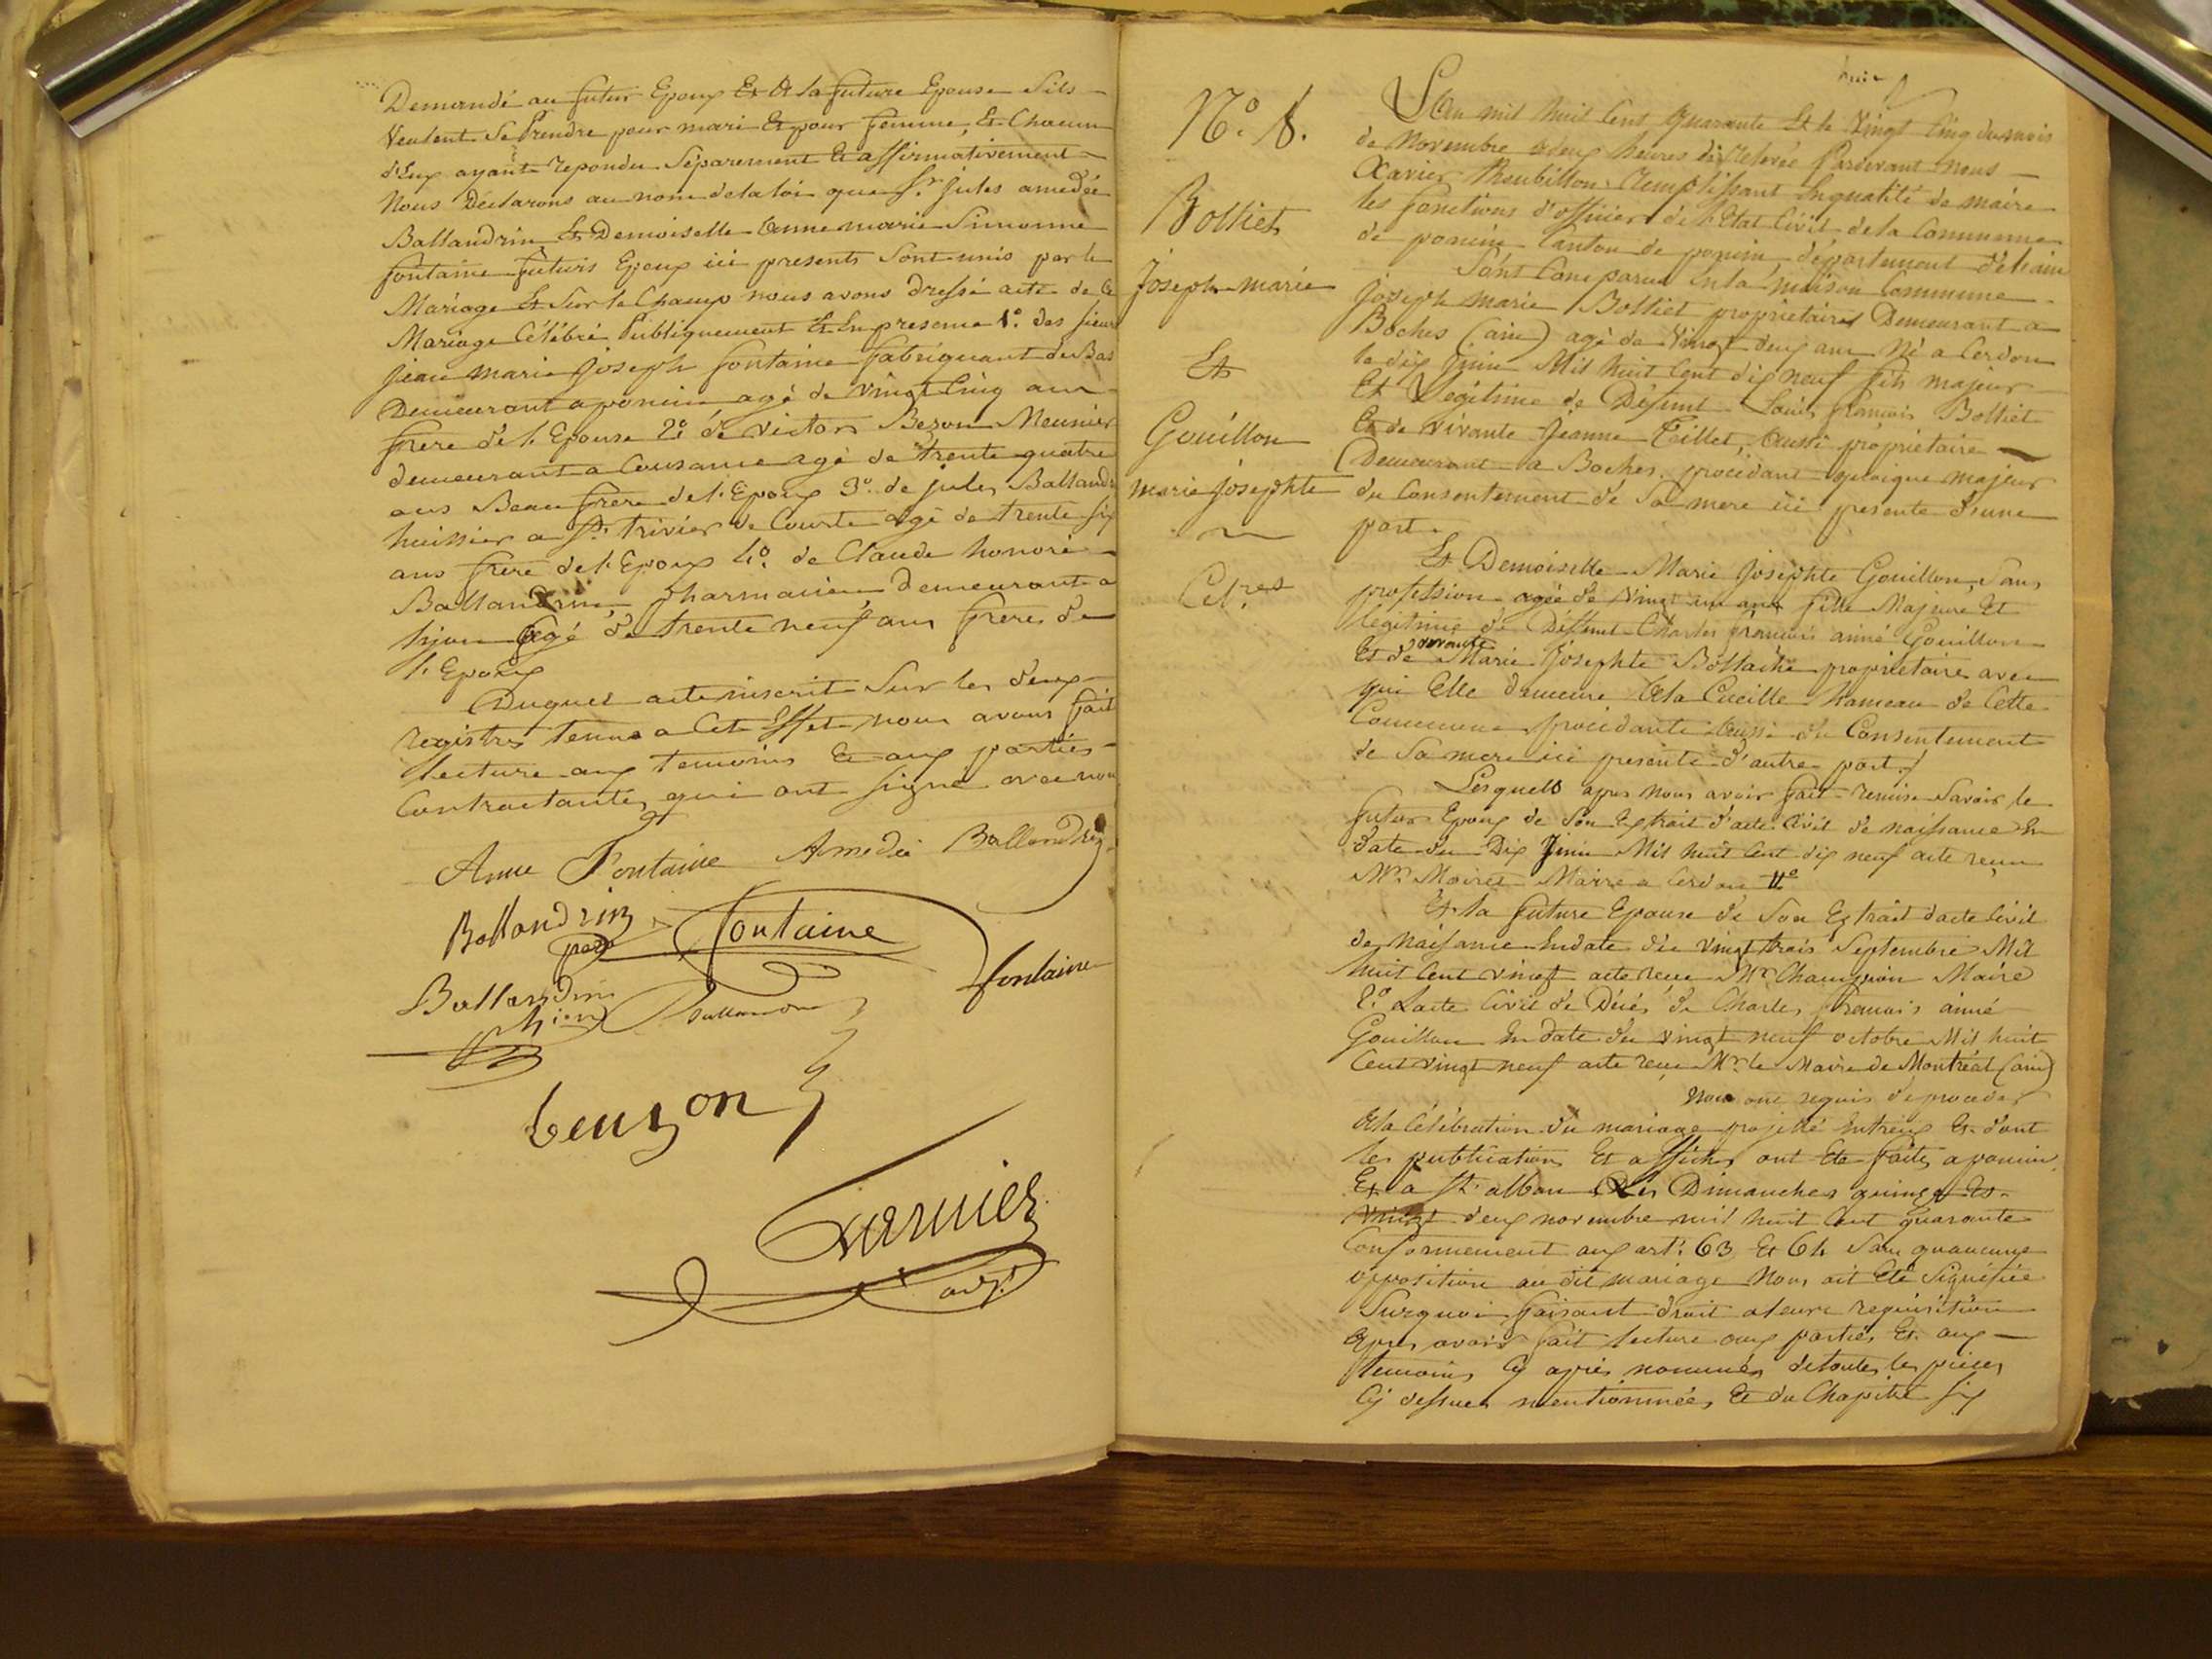 Demandé au futur Epoux Et A la future Epouse Sils
Veulent Se Prendre pour mari Et pour femme, Et Chacun
d'Eux ayant repondu Séparement Et affirmativement
Nous Déclarons au nom de la loi que Sr. jules amedée
Ballandrin Et Demoiselle Anne marie Simonne
fontaine futurs Epoux ici presents Sont unis par le
Mariage Et Sur le Champ nous avons dressé acte de Ce
Mariage Célébré Publiquement Et En presence 1º. des sieurs
jean marie Joseph fontaine fabriquant de Bas
Demeurant a poncin agé de vingt Cinq ans
frere de l'Epouse 2º de victor Meunier
demeurant a Cousance agé de trente quatre
ans Beau frere de l'Epoux 3º. de jules Balland
huissier a St. trivier de Courte agé de trente six
ans frere de l'Epoux 4º. de Claude honoré
Ballandrin pharmacien demeurant a
agé de trente neuf ans frere de
l'Epoux
Duquel acte inscrit Sur les deux
registres tenus a Cet Effet nous avons fait
lecture aux temoins Et aux parties
Contractantes qui ont signé avec nou
Anne Fontaine Amedée Ballandrin
Ballandrin fontaine
fontaine
Ballandrin Ballandrin
huit
Nº. 8.
Bolliet
Joseph marie
Et
Gouillon
marie josephte
Cel.res
L'an mil huit Cent quarante Et le vingt Cinq du mois
de Novembre a deux heures de relevée Pardevant nous
Xavier remplissant En qualité de maire
les fonctions d'officier de l'Etat Civil de la Commune
de poncin Canton de poncin département de l'ain
Sont Comparus En la maison Commune
Joseph marie Bolliet propriétaire Demeurant a
Boches (ain) agé de vingt deux ans Né a Cerdon
le dix juin Mil huit Cent dix neuf fils majeur
Et Légitime de Défunt Louis françois Bolliet
Et de vivante Jeanne Tillet, Aussi propriétaire
Demeurant a Boches procédant quoique majeur
du Consentement de Sa mere ici presente d'une
part.
Et Demoiselle Marie Josephte Gouillon, Sans
profession agée de vingt un ans fille Majeure Et
légitime de Défunt Charles françois aimé Gouillon
Et de vivante Marie Josephte propriétaire avec
qui Elle demeure A la Cueille hameau de Cette
Commune procédante Aussi du Consentement
de Sa mere ici presente d'autre part.
Lesquels apres Nous avoir fait remise Savoir le
futur Epoux de Son Extrait d'acte Civil de naissance En
date du Dix Juin Mil huit Cent dix neuf acte reçu
Mr. Maire a Cerdon
Et la future Epouse de Son Extrait d'acte Civil
de Naissance En date du vingt trois Septembre Mil
huit Cent vingt acte reçu Mr. Champion Maire
2º. L'acte Civil de Décés de Charles françois aimé
Gouillon En date du vingt neuf octobre Mil huit
Cent vingt neuf acte reçu Mr. le Maire de Montréal (ain)
Nous ont requis de proceder
A la Célébration du mariage projetté Entreux Et dont
les publications Et affiches ont Eté faites a poncin
Et a St. alban Les Dimanches quinze Et
vingt deux novembre mil huit Cent quarante
Conformement aux art. 63 Et 64 Sans quaucune
opposition au dit mariage Nous ait Eté Signifiée
Surquoi faisant droit a leur requisition
apres avoir fait lecture aux parties Et aux
temoins Cy apres nommés de toutes les pieces
Cy dessus mentionnées, Et du Chapitre six